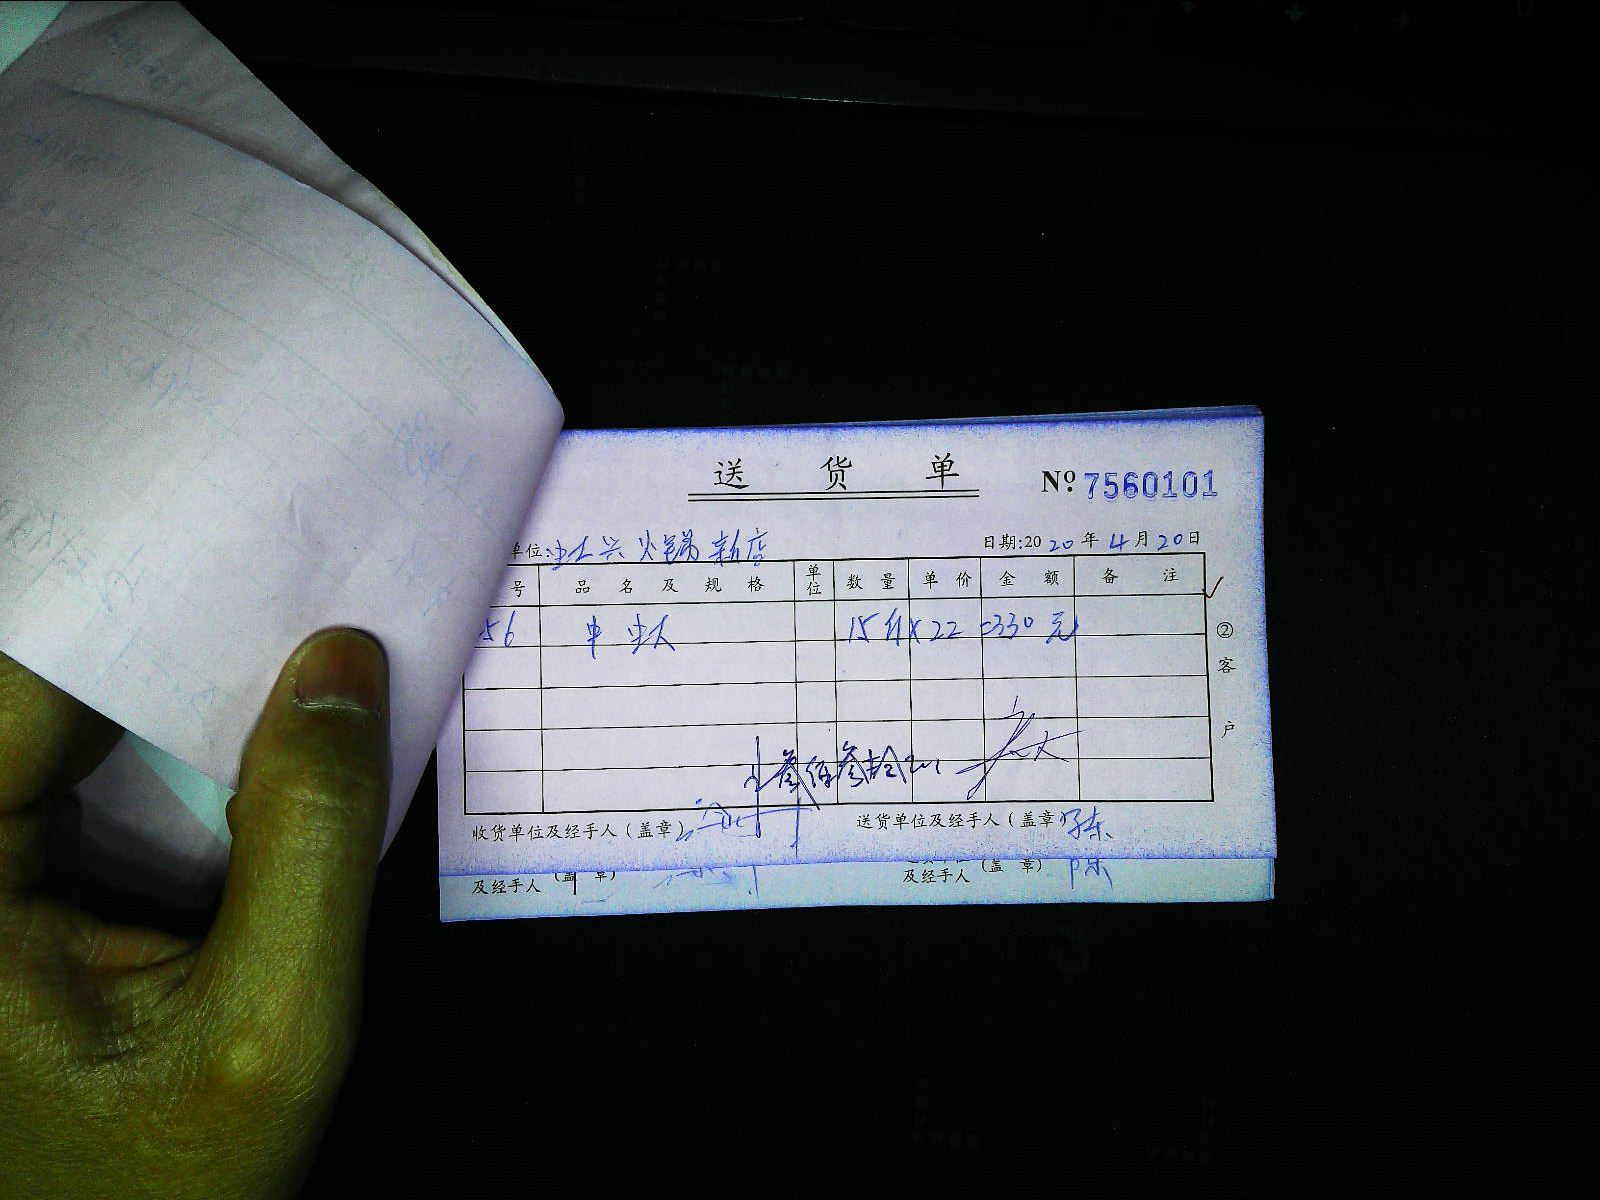 送 货 单
№ 7560101
单位: 兴火锅新店
日期:2020年4月20日
号 品 名 及 规 格 单位 数 量 单 价 金 额 备 注
56 中 15斤×22 =330元
②客户
叁佰叁拾
收货单位及经手人（盖章）
送货单位及经手人（盖章
及经手人 （盖 章）
及经手人 （盖 章） 陈